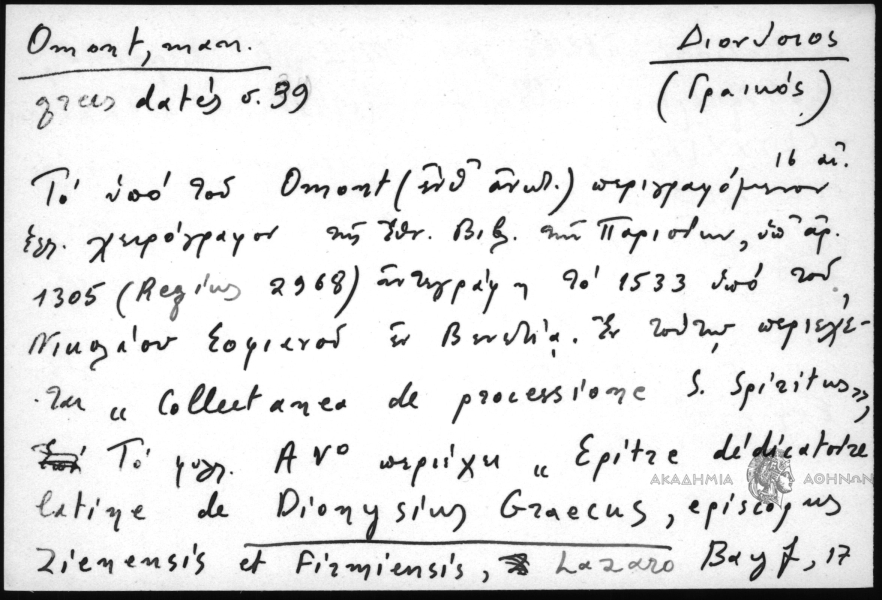 Omont, man.
Διονύσιος
grecs datés σ. 39
(Γραικός)
Τό ὑπό τοῦ Omont (ἔνθ' ἄνωτ.) περιγραφόμενον 16 αἰ.
ἑλλ. χειρόγραφον τῆς Ἐθν. Βιβλ. τῆς Παρισίων, ὑπ' ἀρ.
1305 (Regius 2968) ἀντεγράφη τό 1533 ὑπό τοῦ
Νικολάου Σοφιανοῦ ἐν Βενετίᾳ. Ἐν τούτῳ περιέχε-
ται „Collectanea de processione S. Spiritus”,
Τό φυλλ. A v° περιέχει „Epître dédicatoire
latine de Dionysius Graecus, episcopus
Zienensis et Firmiensis, Lazaro Bayf, 17
ΑΚΑΔΗΜΙΑ ΑΘΗΝΩΝ